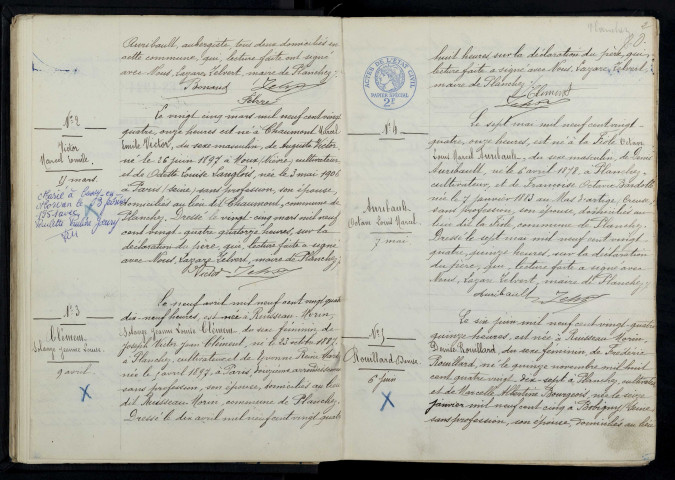 Auribault, aubergiste, tous deux domiciliés en
cette commune, qui, lecture faite ont signé
avec Nous, Lazare Lelvert, maire de Planchez.
N° 2
Victor
Marcel Emile
27 mars.
Marié à
Le vingt cinq mars mil neuf cent vingt
quatre, onze heures est né à Chaumont Marcel
Emile Victor, du sexe masculin, de Auguste Victor
né le 26 juin 1897 à (Nièvre) cultivateur
et de Odette Louise Langlois, née le 3 mai 1906
à Paris (Seine) sans profession, son épouse,
domiciliés au lieu dit Chaumont, commune de
Planchez. Dressé le vingt-cinq mars mil neuf
cent vingt-quatre quatorze heures, sur la
déclaration du père, qui, lecture faite a signé
avec Nous, Lazare Lelvert, maire de Planchez.
Victor
N° 3
Clément
Solange Jeanne Louise
9 avril.
X
Le neuf avril mil neuf cent vingt quatre
dix neuf heures, est née à Ruisseau-Morin,
Solange Jeanne Louise Clément du sexe féminin, de
Joseph Victor Jean Clément, né le 23 octobre 1887
à Planchez, cultivateur et de Yvonne
née le 1 avril 1897, à Paris, arrondissement
sans profession, son épouse, domiciliés au lieu
dit Ruisseau-Morin, commune de Planchez.
Dressé le dix avril mil neuf cent vingt quatre
Planchez
2
ACTES DE L'ÉTAT CIVIL
PAPIER SPÉCIAL
2F
huit heures, sur la déclaration du père, qui,
lecture faite a signé avec Nous, Lazare Lelvert,
maire de Planchez.
Clément
N° 4
Auribault
Octave Louis Marcel
7 mai
Le sept mai mil neuf cent vingt-
quatre, onze heures, est né à la Octave
Louis Marcel Auribault, du sexe masculin, de
Auribault, né le 5 avril à Planchez,
cultivateur, et de Françoise
née le 7 janvier au Mas d'Artige, Creuse,
sans profession, son épouse, domiciliés au
lieu dit commune de Planchez.
Dressé le sept mai mil neuf cent vingt-
quatre, quinze heures, sur la déclaration
du père, qui, lecture faite a signé avec
Nous, Lazare Lelvert, maire de Planchez.
Auribault
N° 5
Rouillard Denise
6 juin
X
Le six juin mil neuf cent vingt-quatre
quinze heures, est née à Ruisseau-Morin
Denise Rouillard, du sexe féminin, de Frédéric
Rouillard, né le quinze novembre mil huit
cent quatre vingt dix-sept à Planchez, cultivateur
et de Marcelle Albertine Bourgeois, née le seize
janvier mil neuf cent cinq à Bobigny (Seine)
sans profession, son épouse, domiciliés au lieu